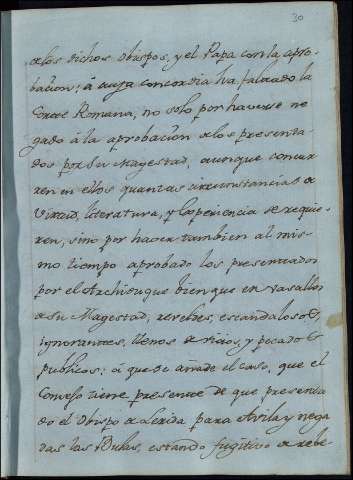 30
de los dichos obispos, y el Papa con la apro-
bacion; á cuya concordia ha faltado la
Corte Romana, no solo por haverse ne
gado á la aprobacion de los presenta-
dos por Su Magestad, aunque concur
ren en ellos quantas circunstancias de
virtud, literatura, y experiencia se requie-
ren, sino por haver tambien al mis-
mo tiempo aprobado los presentados
por el Archiduque bien que en vasallos
de su Magestad, rebeldes, escandalosos,
ignorantes, llenos de vicios, y pecados
publicos; á que se añade el caso, que el
Consejo tiene presente de que presenta
do el Obispo de Lerida para Avila y nega
das las Bulas, estando fugitivo de rebe-